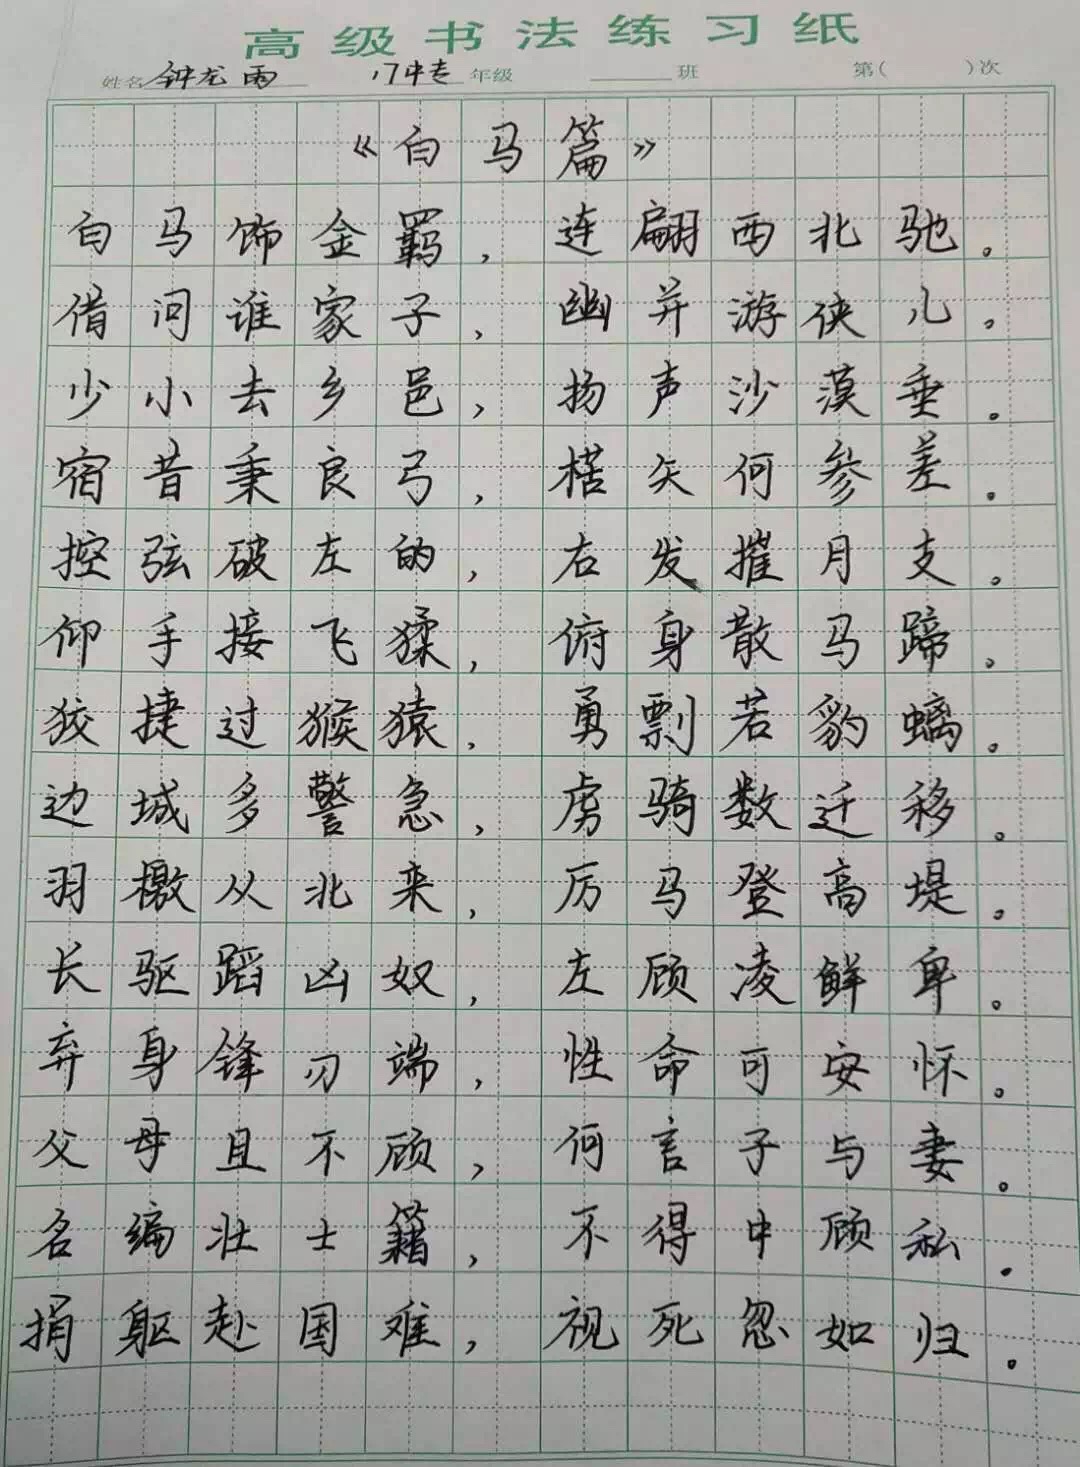 高级书法练习纸
姓名 钟龙雨 17中专 年级 班 第( )次
《白马篇》
白马饰金羁，连翩西北驰。
借问谁家子，幽并游侠儿。
少小去乡邑，扬声沙漠垂。
宿昔秉良弓，楛矢何参差。
控弦破左的，右发摧月支。
仰手接飞猱，俯身散马蹄。
狡捷过猴猿，勇剽若豹螭。
边城多警急，虏骑数迁移。
羽檄从北来，厉马登高堤。
长驱蹈凶奴，左顾凌鲜卑。
弃身锋刃端，性命可安怀。
父母且不顾，何言子与妻。
名编壮士籍，不得中顾私。
捐躯赴国难，视死忽如归。